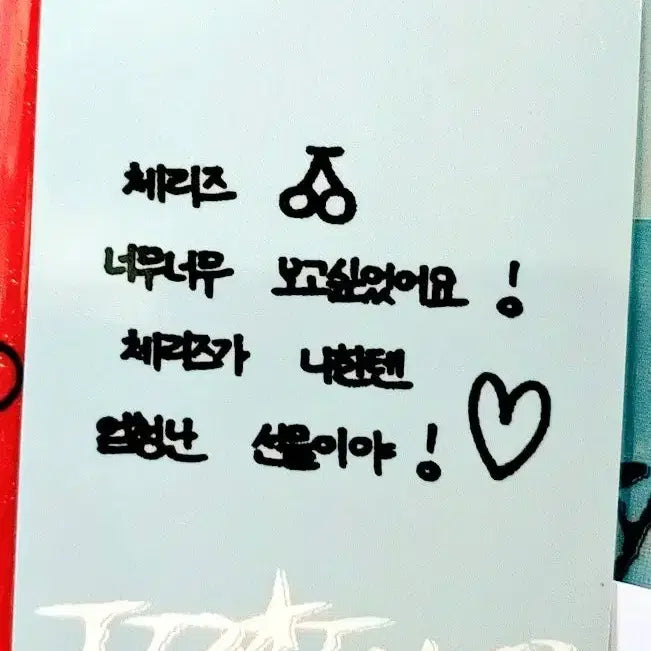 체리즈
너무너무 보고싶었어요!
체리즈가 나한텐
엄청난 선물이야!